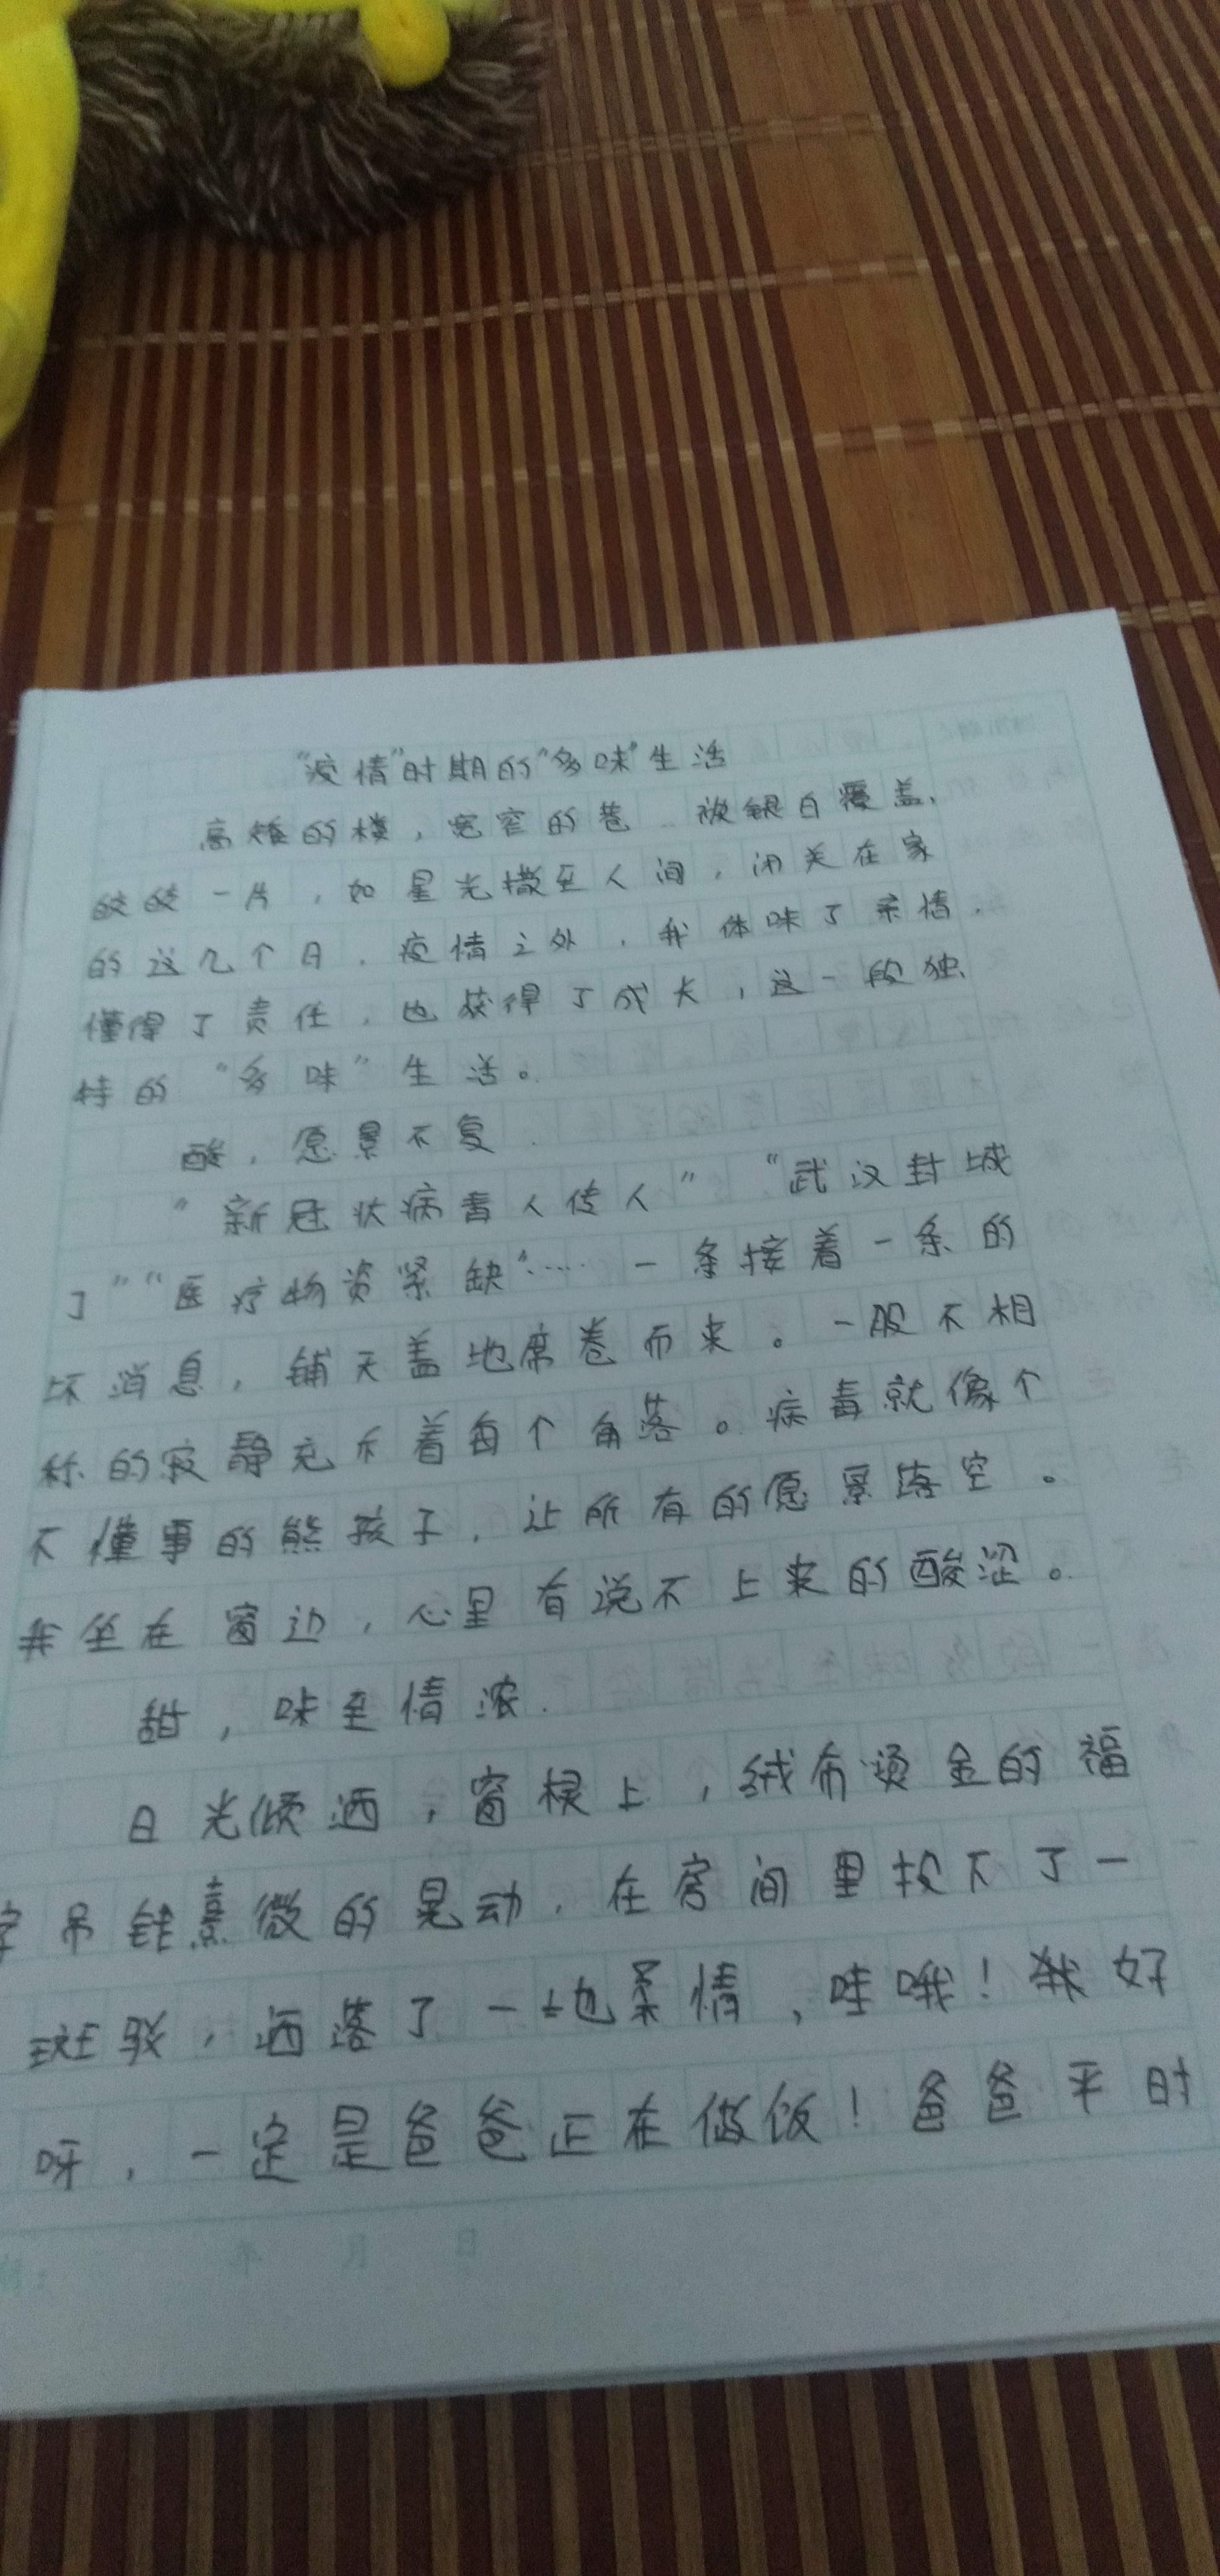 “疫情”时期的“多味”生活
高矮的楼，宽窄的巷 被银白覆盖，
皎皎一片，如星光撒至人间，闭关在家
的这几个月，疫情之外，我体味了亲情，
懂得了责任，也获得了成长，这一段独
特的“多味”生活。
酸，愿景不复
“新冠状病毒人传人”“武汉封城
了”“医疗物资紧缺”…… 一条接着一条的
坏消息，铺天盖地席卷而来。一股不相
称的寂静充斥着每个角落。病毒就像个
不懂事的熊孩子，让所有的愿景落空。
我坐在窗边，心里有说不上来的酸涩。
甜，味至情浓．
日光倾洒，窗棂上，绒布烫金的福
字吊锤熹微的晃动，在房间里投下了一
斑驳，洒落了一地柔情，哇哦！我好
呀，一定是爸爸正在做饭！爸爸平时
年 月 日